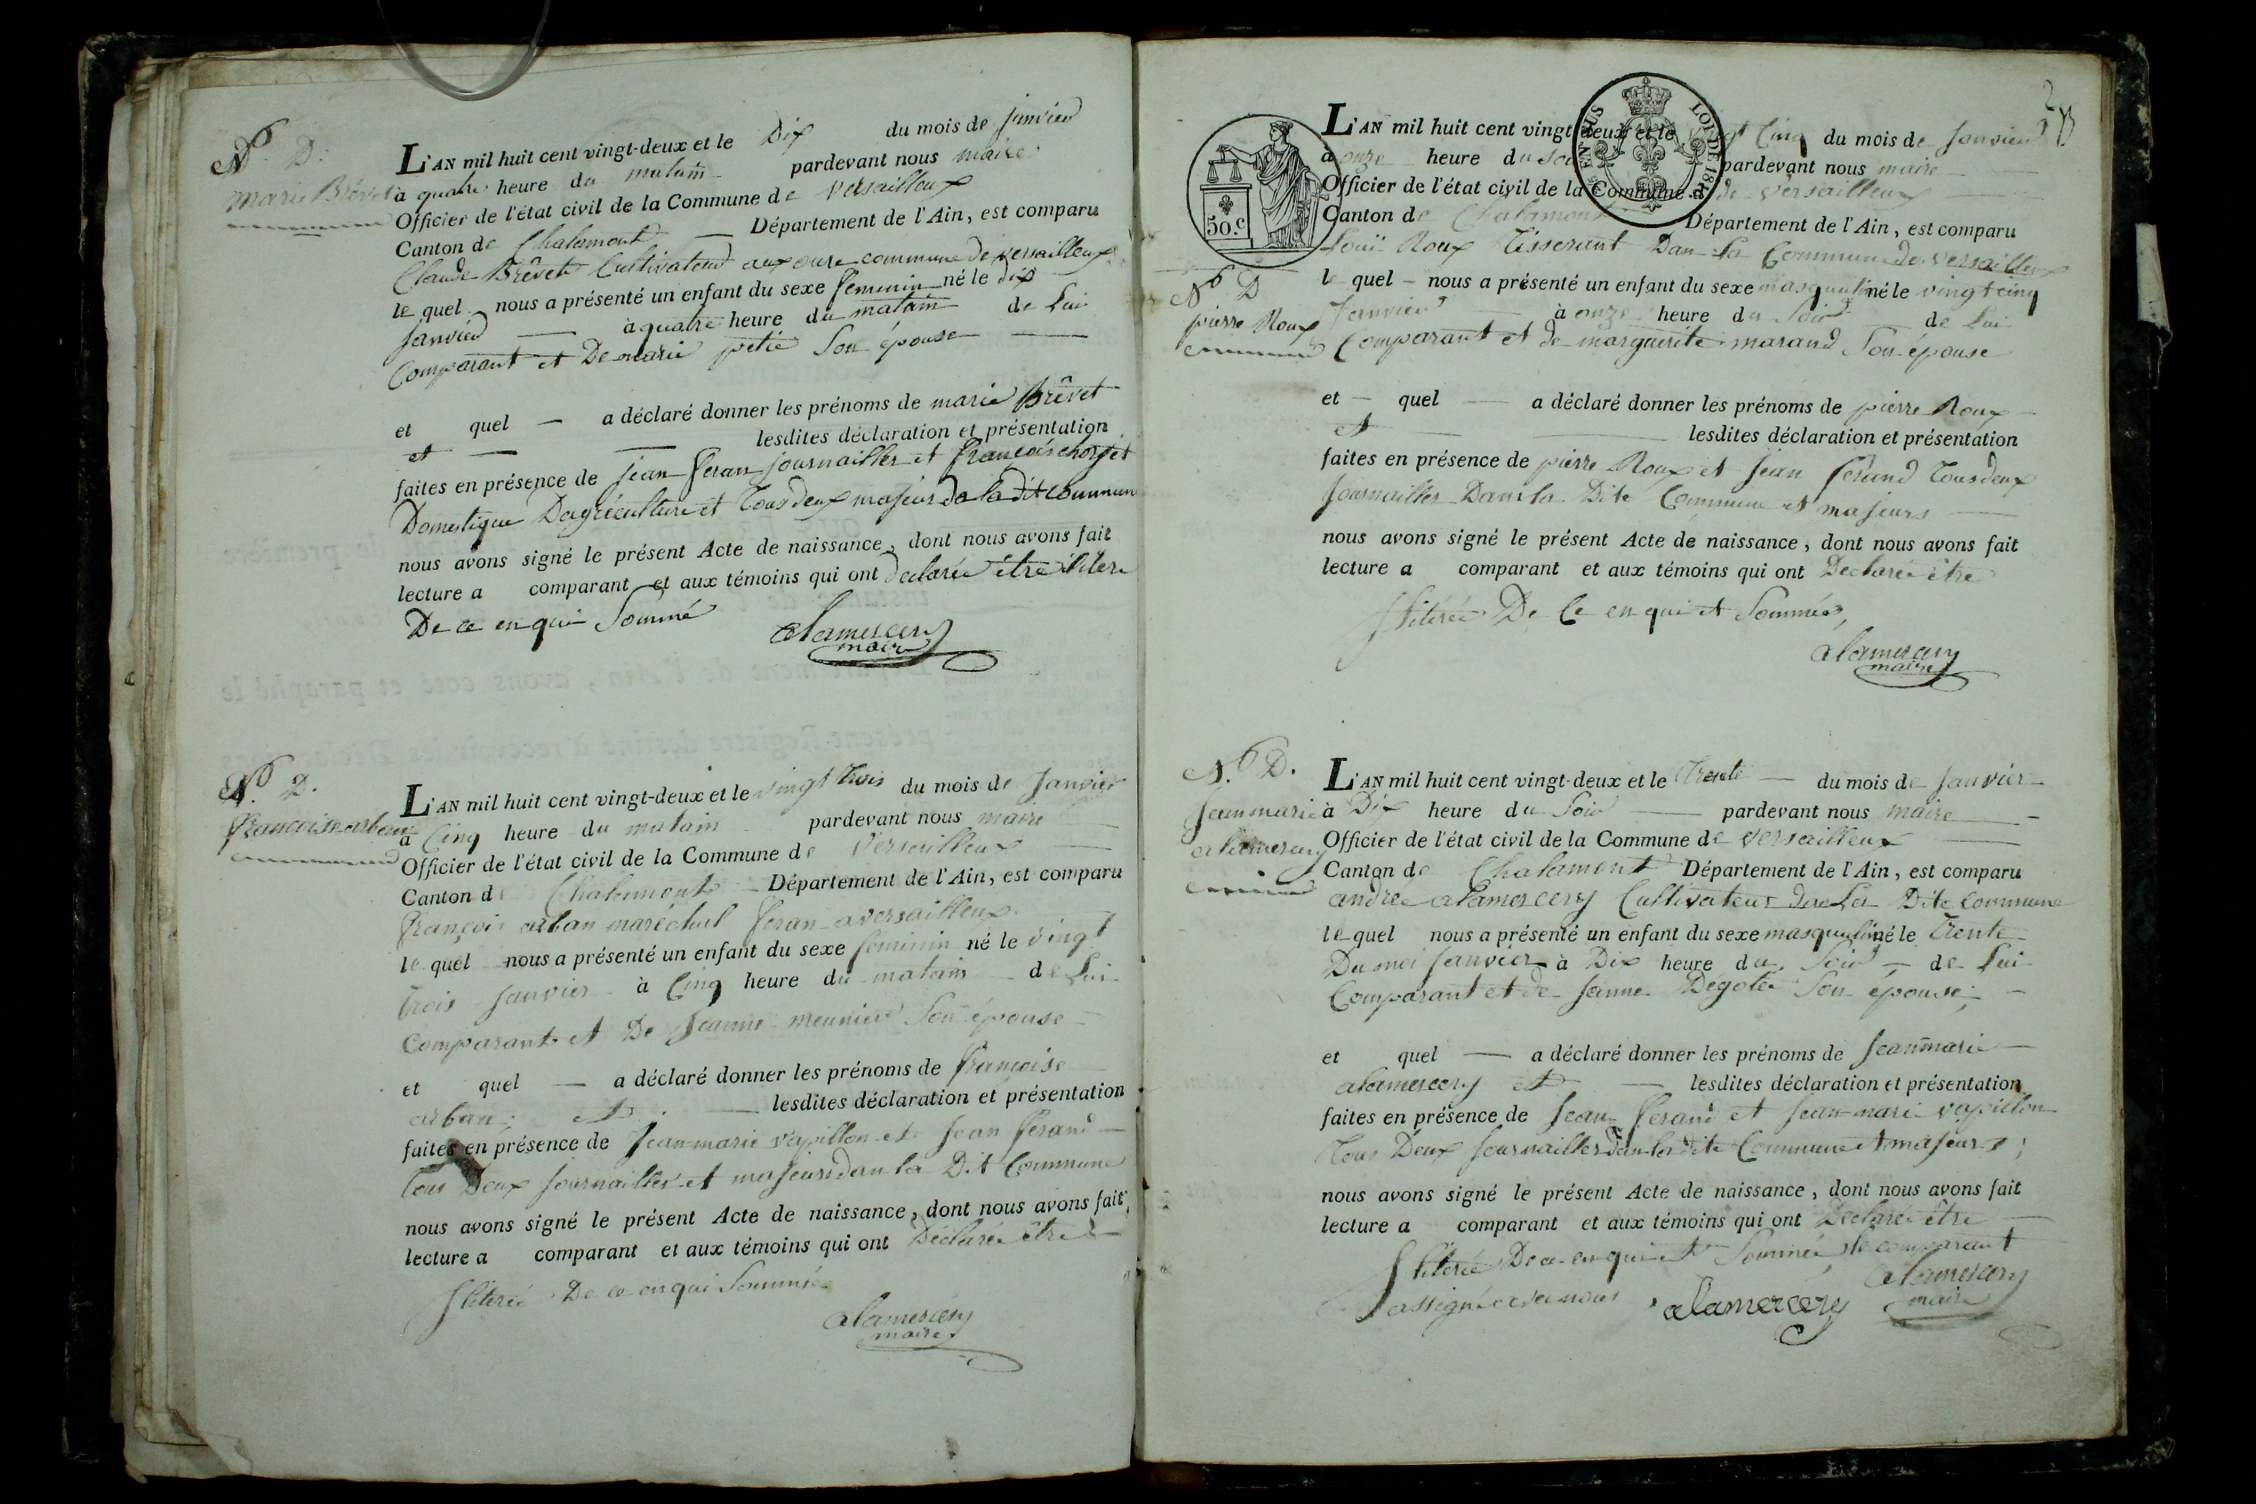 N.o D.
marie Brêvet
L'AN mil huit cent vingt-deux et le Dix du mois de janvier
à quatre heure du matain pardevant nous maire
Officier de l'état civil de la Commune de versailleux
Canton de Chalamont Département de l'Ain, est comparu
Claude Brêvet Cultivateur aux oure commune de versailleux
le quel nous a présenté un enfant du sexe feminin né le dix
janvier à quatre heure du matain de Lui
Comparant et De marie petie Son épouse
et quel — a déclaré donner les prénoms de marie Brêvet
et — lesdites déclaration et présentation
faites en présence de jean feran journailler et francois chorjet
Domestique Dagriculture et Tous deux majeur de la dit commune
nous avons signé le présent Acte de naissance, dont nous avons fait
lecture a comparant et aux témoins qui ont declarée être ilitere
De ce enqui Sommé
alamercery
maire
N.o D.
francoise arban
L'AN mil huit cent vingt-deux et le vingt Trois du mois de Janvier
à Cinq heure du matain pardevant nous maire
Officier de l'état civil de la Commune de Versailleux
Canton de Chalamont Département de l'Ain, est comparu
françois arban maréchal feran a versailleux
le quel nous a présenté un enfant du sexe féminin né le vingt
trois Janvier à Cinq heure du matain de Lui
Comparant et De Jeanne meunier Son épouse
et quel — a déclaré donner les prénoms de françoise
arban; et — lesdites déclaration et présentation
faites en présence de Jean marie vapillon et Jean ferand
Tous Deux journailler et majeurs dan la Dit Commune
nous avons signé le présent Acte de naissance, dont nous avons fait
lecture a comparant et aux témoins qui ont Déclarée être
Iliterée De ce enqui Sommée
alamercery
maire
2
L'AN mil huit cent vingt-deux et le vingt Cinq du mois de Janvier
à onze heure du soir pardevant nous maire
Officier de l'état civil de la Commune de versailleux
Canton de Chalamont Département de l'Ain, est comparu
EN SUS
LOI DE 1816
50.c
Louï Roux Tisserant Dan La Commune de versailleux
N.o D
pierre Roux
le quel — nous a présenté un enfant du sexe masqualin né le vingt cinq
Janvier à onze heure du Soir de Lui
Comparant et de marguerite marand Son épouse
et — quel — a déclaré donner les prénoms de pierre Roux
et — lesdites déclaration et présentation
faites en présence de pierre Roux et Jean ferand Tous deux
Journailler Dans la Dite Commune et majeurs
nous avons signé le présent Acte de naissance, dont nous avons fait
lecture a comparant et aux témoins qui ont Declarée être
Iliterée De Ce en qui et Sommée,
alamercery
maire
N.o D.
Jean marie
alamercery
L'AN mil huit cent vingt-deux et le Trente — du mois de Janvier
à Dix heure du Soir pardevant nous maire
Officier de l'état civil de la Commune de versailleux
Canton de Chalamont Département de l'Ain, est comparu
andrée alamercery Cultivateur dan La Dite Commune
le quel nous a présenté un enfant du sexe masqualin né le Trente
Du moi Janvier à Dix heure du Soir — de Lui
Comparant et de Janne Dégotée Son épouse;
et quel — a déclaré donner les prénoms de Jean marie
alamercery et — lesdites déclaration et présentation
faites en présence de Jean ferand et Jean marie vapillon
Tous Deux Journailler dan la dite Commune et majeurs;
nous avons signé le présent Acte de naissance, dont nous avons fait
lecture a comparant et aux témoins qui ont Declarée être
Iliterée De ce en qui et Sommée le comparant
assignée avec nous alamercery
alamercery
maire